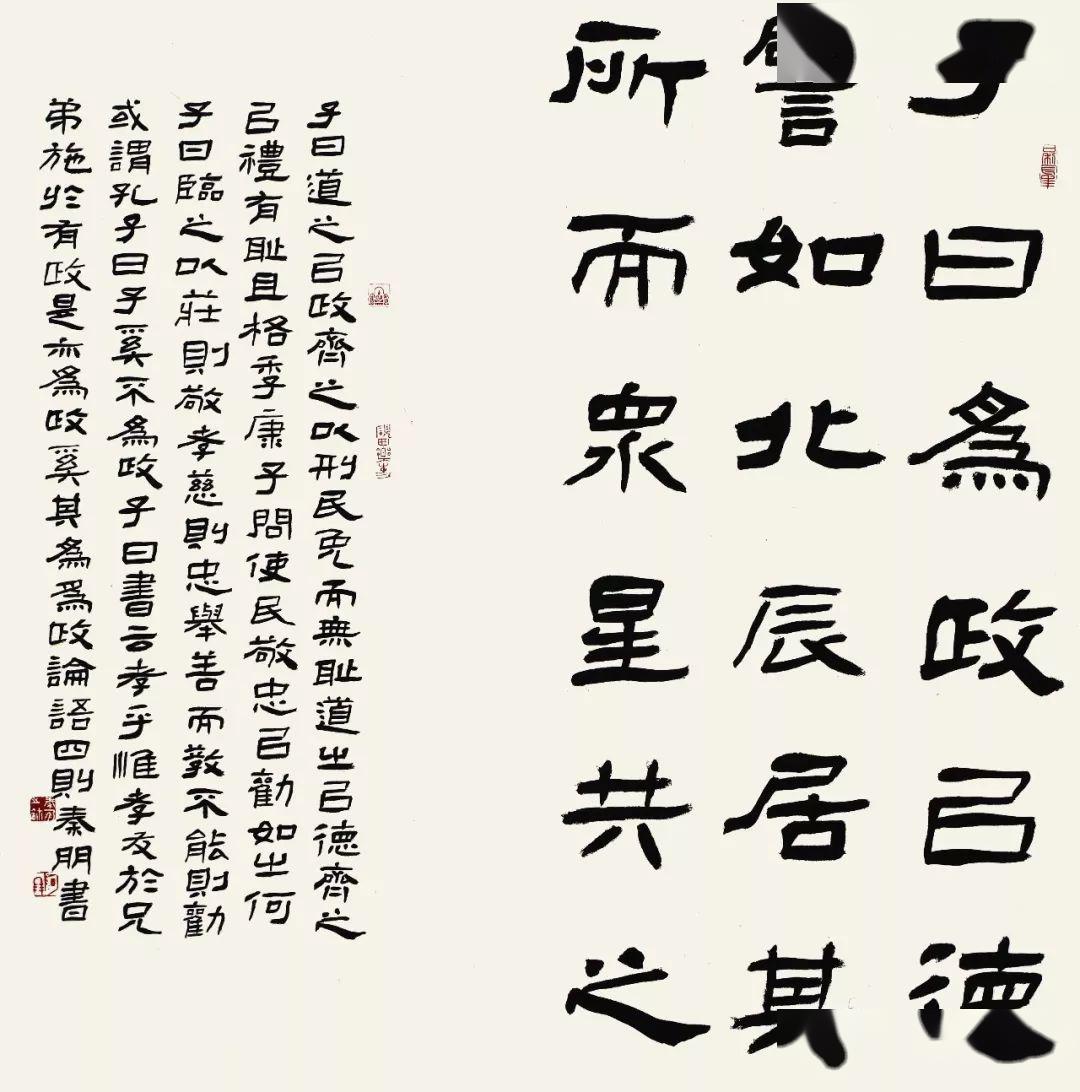 子曰爲政㠯德
譬如北辰居其
所而衆星共之
子曰道之㠯政齊之以刑民免而無耻道之㠯德齊之
㠯禮有耻且格季康子問使民敬忠㠯勸如之何
子曰臨之以莊則敬孝慈則忠舉善而教不能則勸
或謂孔子曰子奚不爲政子曰書云孝乎惟孝友於兄
弟施於有政是亦爲政奚其爲爲政論語四則秦朋書